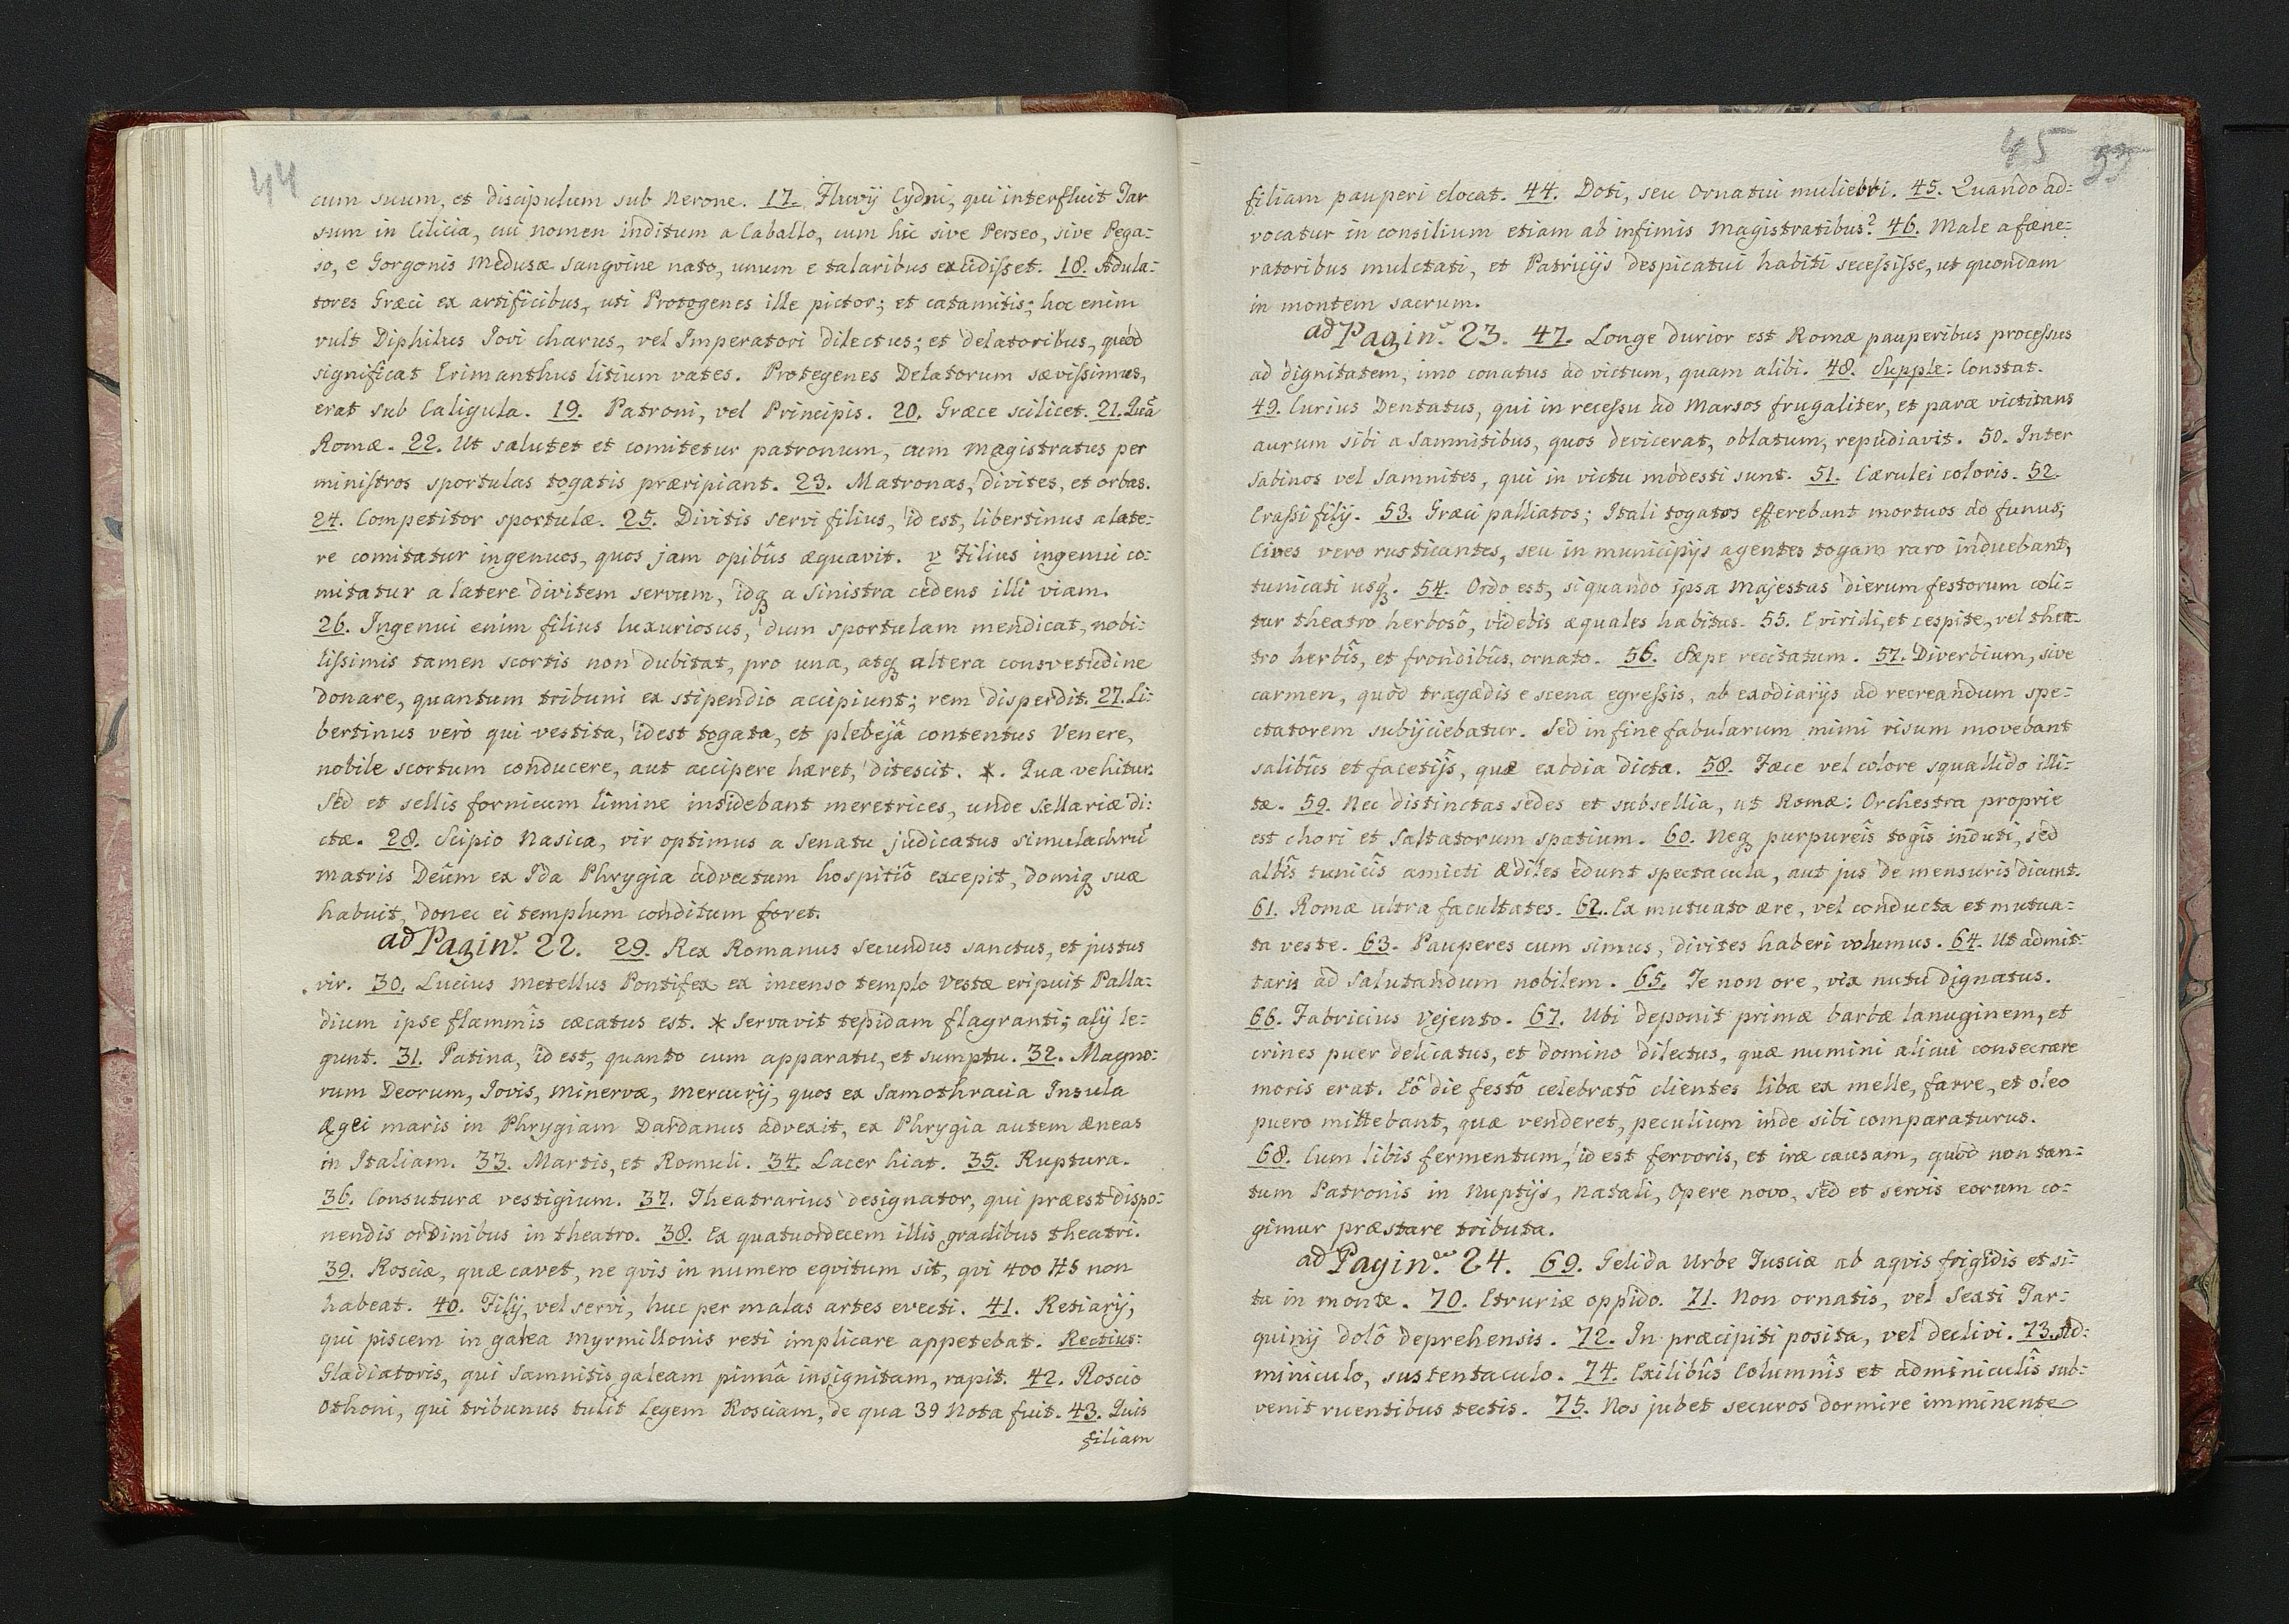 44
cum suum, et discipulum sub Nerone. 17. Fluvij Cydni, qui interfluit Tar
sum in Cilicia, cui nomen inditum a Caballo, cum hic sive Perseo, sive Pega=
so, e Gorgonis Medusæ sangvine nato, unum e talaribus excidisset. 18. Adula=
tores Græci ex artificibus, uti Protogenes ille pictor; et catamitis; hoc enim
vult Diphilus Jovi charus, vel Imperatori dilectus; et delatoribus, quod
significat Erimanthus litium vates. Protegenes Delatorum sævissimus,
erat sub Caligula. 19. Patroni, vel Principis. 20. Græce scilicet. 21. Quā
Romæ. 22. Ut salutet et comitetur patronum, cum Magistratus per
ministros sportulas togatis præripiant. 23. Matronas, divites, et orbas.
24. Competitor sportulæ. 25. Divitis servi filius, id est, libertinus a late=
re comitatur ingenuos, quos jam opibûs æquavit. v̲ Filius ingenui co=
mitatur a latere divitem servum, idq̨ a sinistra cedens illi viam.
26. Ingenui enim filius luxuriosus, dum sportulam mendicat, nobi=
lissimis tamen scortis non dubitat, pro una, atq̨ altera consvetudine
donare, quantum tribuni ex stipendio accipiunt; rem disperdit. 27. Li=
bertinus verò qui vestita, idest togata, et plebejâ contentus Venere,
nobile scortum conducere, aut accipere hæret, ditescit. *. Qua vehitur.
Sed et sellis fornicum limine insidebant meretrices, unde Sellariæ di=
ctæ. 28. Scipio Nasica, vir optimus a Senatu judicatus simulachrū
matris Deûm ex Ida Phrygia advectum hospitiô excepit, domiq̨ suæ
habuit, donec ei templum conditum foret.
ad Pagin. 22. 29. Rex Romanus secundus sanctus, et justus
vir. 30. Lucius Metellus Pontifex ex incenso templo Vestæ eripuit Palla=
dium ipse flammîs cæcatus est. * Servavit tepidam flagranti; alij le=
gunt. 31. Patina, id est, quanto cum apparatu, et sumptu. 32. Magno=
rum Deorum, Jovis, Minervæ, Mercurij, quos ex Samothracia Insula
Ægei maris in Phrygiam Dardanus advexit, ex Phrygia autem Æneas
in Italiam. 33. Martis, et Romuli. 34. Lacer hiat. 35. Ruptura.
36. Consuturæ vestigium. 37. Theatrarius designator, qui præest dispo=
nendis ordinibus in theatro. 38. Ex quatuordecem illis gradibus theatri.
39. Rosciæ, quæ cavet, ne qvis in numero eqvitum sit, qvi 400 HS non
habeat. 40. Filij, vel servi, huc per malas artes evecti. 41. Retiarij,
qui piscem in galea Myrmillonis reti implicare appetebat. Rectius:
Gladiatoris, qui Samnitis galeam pinnâ insignitam, rapit. 42. Roscio
Othoni, qui tribunus tulit legem Rosciam, de qua 39 Nota fuit. 43. Quis
filiam
45
filiam pauperi elocat. 44. Doti, seu ornatui muliebri. 45. Quando ad=
vocatur in consilium etiam ab infimis Magistratibus? 46. Male a fæne=
ratoribus mulctati, et Patricijs despicatui habiti secessisse, ut quondam
in montem sacrum.
ad Pagin. 23. 47. Longe durior est Romæ pauperibus processus
ad dignitatem, imo conatus ad victum, quam alibi. 48. Supple: Constat.
49. Curius Dentatus, qui in recessu ad Marsos frugaliter, et parce victitans
aurum sibi a Samnitibus, quos devicerat, oblatum, repudiavit. 50. Inter
Sabinos vel Samnites, qui in victu modesti sunt. 51. Cærulei coloris. 52.
Crassi filij. 53. Græci palliatos; Itali togatos efferebant mortuos ad funus;
Cives vero rusticantes, seu in municipijs agentes togam raro induebant,
tunicati usq̨. 54. Ordo est, si quando ipsa Majestas dierum festorum coli=
tur theatro herbosô, videbis æquales habitus. 55. E viridi, et cespite, vel thea=
tro herbîs, et frondibûs, ornato. 56. Sæpe recitatum. 57. Diverbium, sive
carmen, quod tragædis e scena egressis, ab exodiarijs ad recreandum spe=
ctatorem subijciebatur. Sed in fine fabularum mimi risum movebant
salibûs et facetijs, quæ exodia dicta. 58. Fæce vel colore squallido illi=
tæ. 59. Nec distinctas sedes et subsellia, ut Romæ: Orchestra proprie
est chori et saltatorum spatium. 60. Neq̨ purpureîs togîs induti, sed
albîs tunicîs amicti Ædiles edunt spectacula, aut jus de mensuris dicunt.
61. Romæ ultra facultates. 62. Ex mutuato ære, vel conducta et mutua=
ta veste. 63. Pauperes cum simus, divites haberi volumus. 64. Ut admit=
taris ad salutandum nobilem. 65. Te non ore, vix nutu dignatus.
66. Fabricius Vejento. 67. Ubi deponit primæ barbæ lanuginem, et
crines puer delicatus, et domino dilectus, quæ numini alicui consecrare
moris erat. Eô die festô celebratô clientes liba ex melle, farre, et oleo
puero mittebant, quæ venderet, peculium inde sibi comparaturus.
68. Cum libis fermentum, id est fervoris, et iræ causam, quòd non tan=
tum Patronis in Nuptijs, Natali, Opere novo, sed et servis eorum co=
gimur præstare tributa.
ad Pagin. 24. 69. Gelida Urbe Tusciæ ab aqvis frigidis et si=
ta in monte. 70. Etruriæ oppido. 71. Non ornatis, vel Sexti Tar=
quinij dolô deprehensis. 72. In præcipiti posita, vel declivi. 73. Ad=
miniculo, sustentaculo. 74. Exilibûs Columnîs et adminiculîs sub=
venit ruentibus tectis. 75. Nos jubet securos dormire imminente